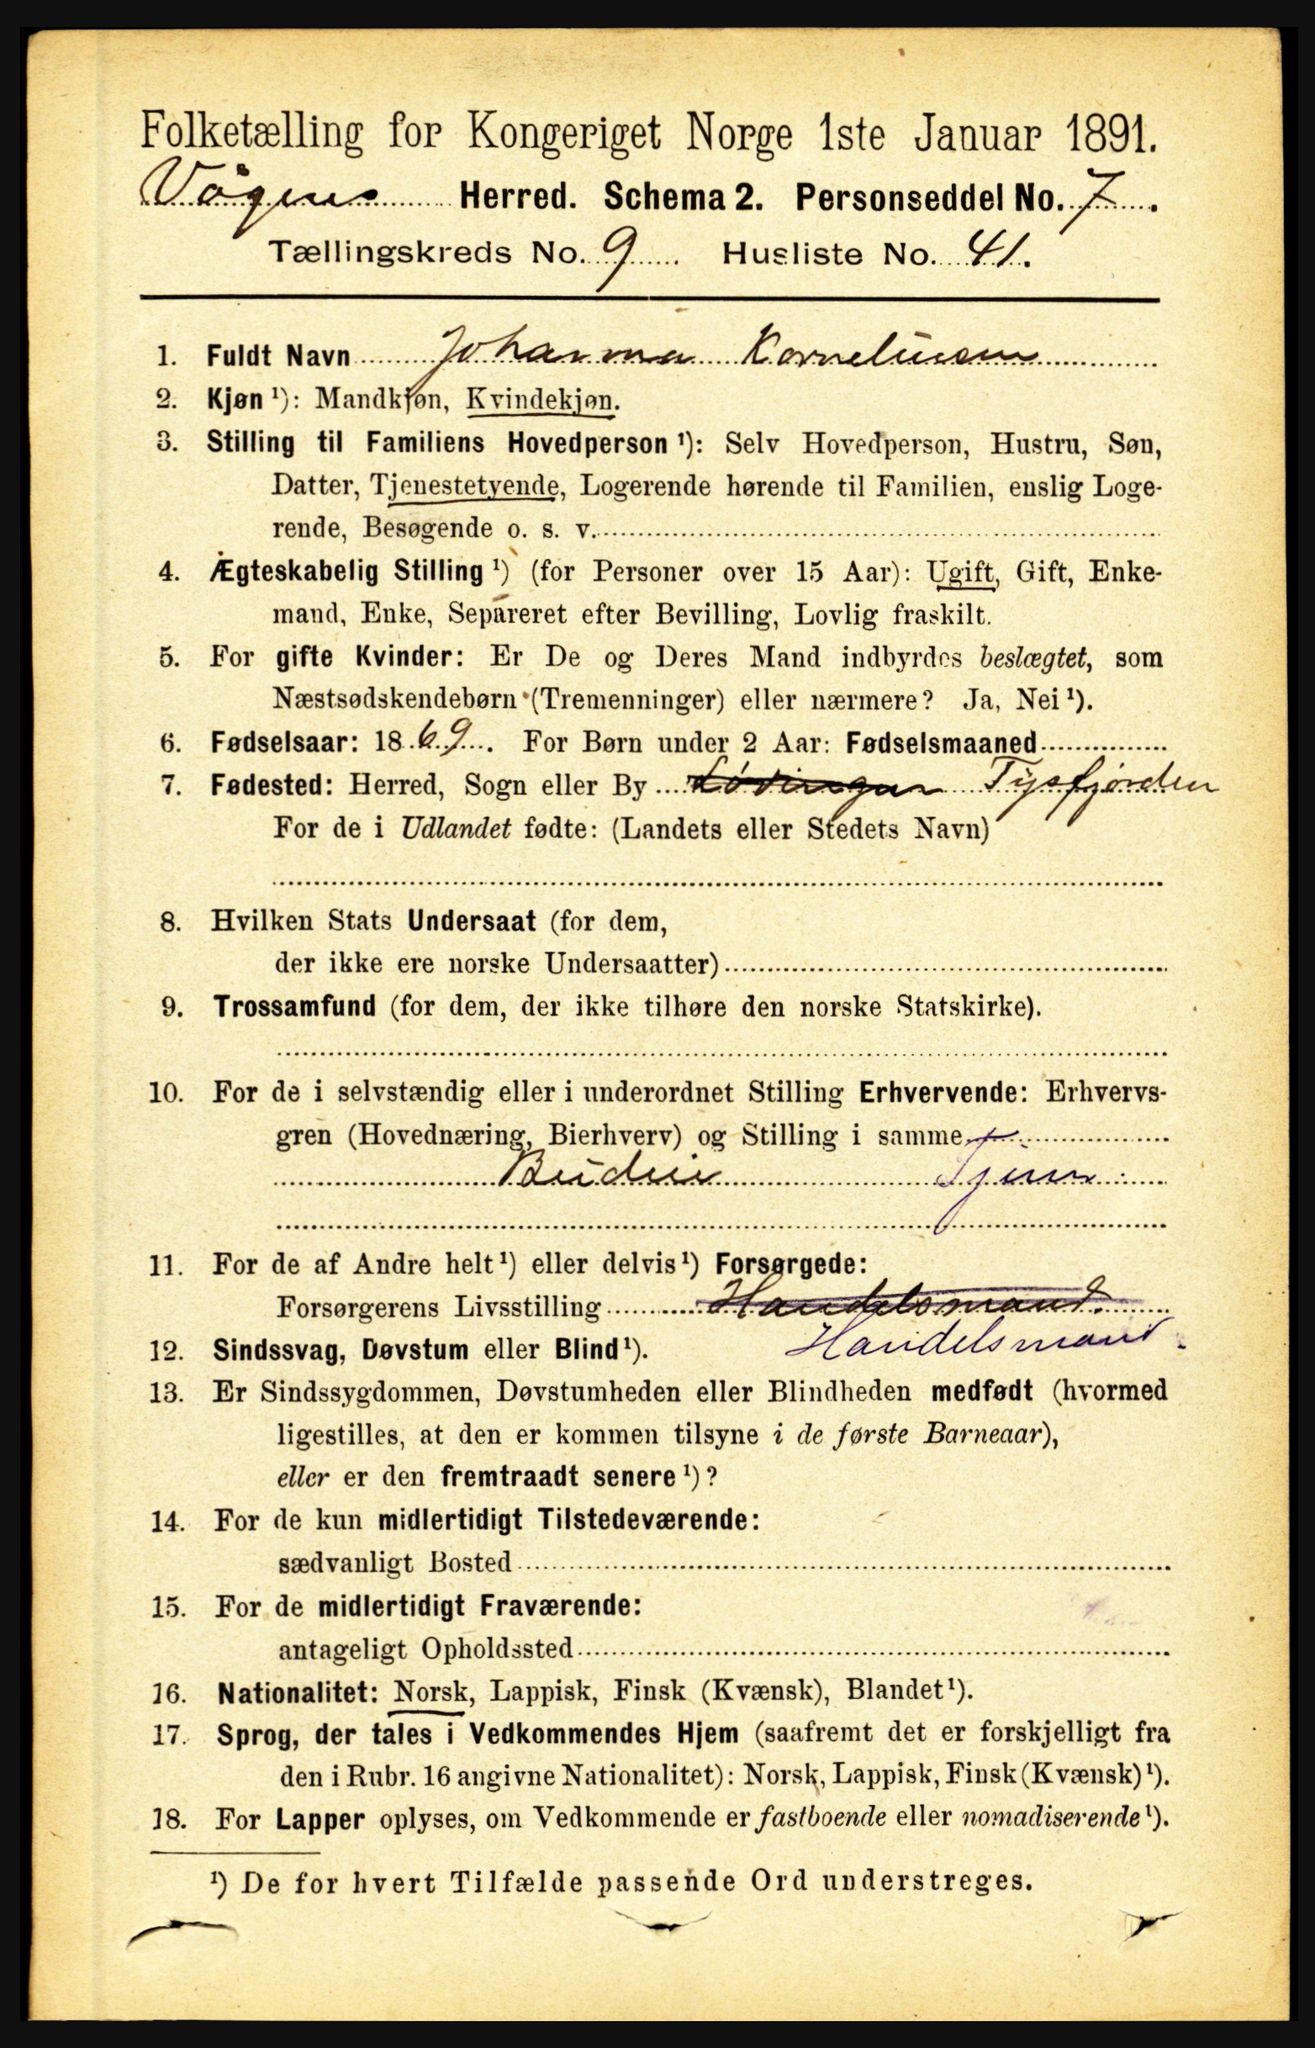 Folketælling for Kongeriget Norge 1ste Januar 1891.
Vågens Herred. Schema 2. Personseddel No. 7.
Tællingskreds No. 9. Husliste No. 41.
1. Fuldt Navn Johanna Korneliusen
2. Kjøn ¹): Mandkjøn, Kvindekjøn.
3. Stilling til Familiens Hovedperson ¹): Selv Hovedperson, Hustru, Søn,
Datter, Tjenestetyende, Logerende hørende til Familien, enslig Loge-
rende, Besøgende o. s. v.
4. Ægteskabelig Stilling ¹) (for Personer over 15 Aar): Ugift, Gift, Enke-
mand, Enke, Separeret efter Bevilling, Lovlig fraskilt.
5. For gifte Kvinder: Er De og Deres Mand indbyrdes beslægtet, som
Næstsødskendebørn (Tremenninger) eller nærmere? Ja, Nei ¹).
6. Fødselsaar: 1869. For Børn under 2 Aar: Fødselsmaaned
7. Fødested: Herred, Sogn eller By Lødingen Tysfjorden
For de i Udlandet fødte: (Landets eller Stedets Navn)
8. Hvilken Stats Undersaat (for dem,
der ikke ere norske Undersaatter)
9. Trossamfund (for dem, der ikke tilhøre den norske Statskirke).
10. For de i selvstændig eller i underordnet Stilling Erhvervende: Erhvervs-
gren (Hovednæring, Bierhverv) og Stilling i samme
Budeie Tjen
11. For de af Andre helt ¹) eller delvis ¹) Forsørgede:
Forsørgerens Livsstilling Handelsmand.
12. Sindssvag, Døvstum eller Blind ¹). Handelsmand
13. Er Sindssygdommen, Døvstumheden eller Blindheden medfødt (hvormed
ligestilles, at den er kommen tilsyne i de første Barneaar),
eller er den fremtraadt senere ¹)?
14. For de kun midlertidigt Tilstedeværende:
sædvanligt Bosted
15. For de midlertidigt Fraværende:
antageligt Opholdssted
16. Nationalitet: Norsk, Lappisk, Finsk (Kvænsk), Blandet ¹).
17. Sprog, der tales i Vedkommendes Hjem (saafremt det er forskjelligt fra
den i Rubr. 16 angivne Nationalitet): Norsk, Lappisk, Finsk (Kvænsk) ¹).
18. For Lapper oplyses, om Vedkommende er fastboende eller nomadiserende ¹).
¹) De for hvert Tilfælde passende Ord understreges.